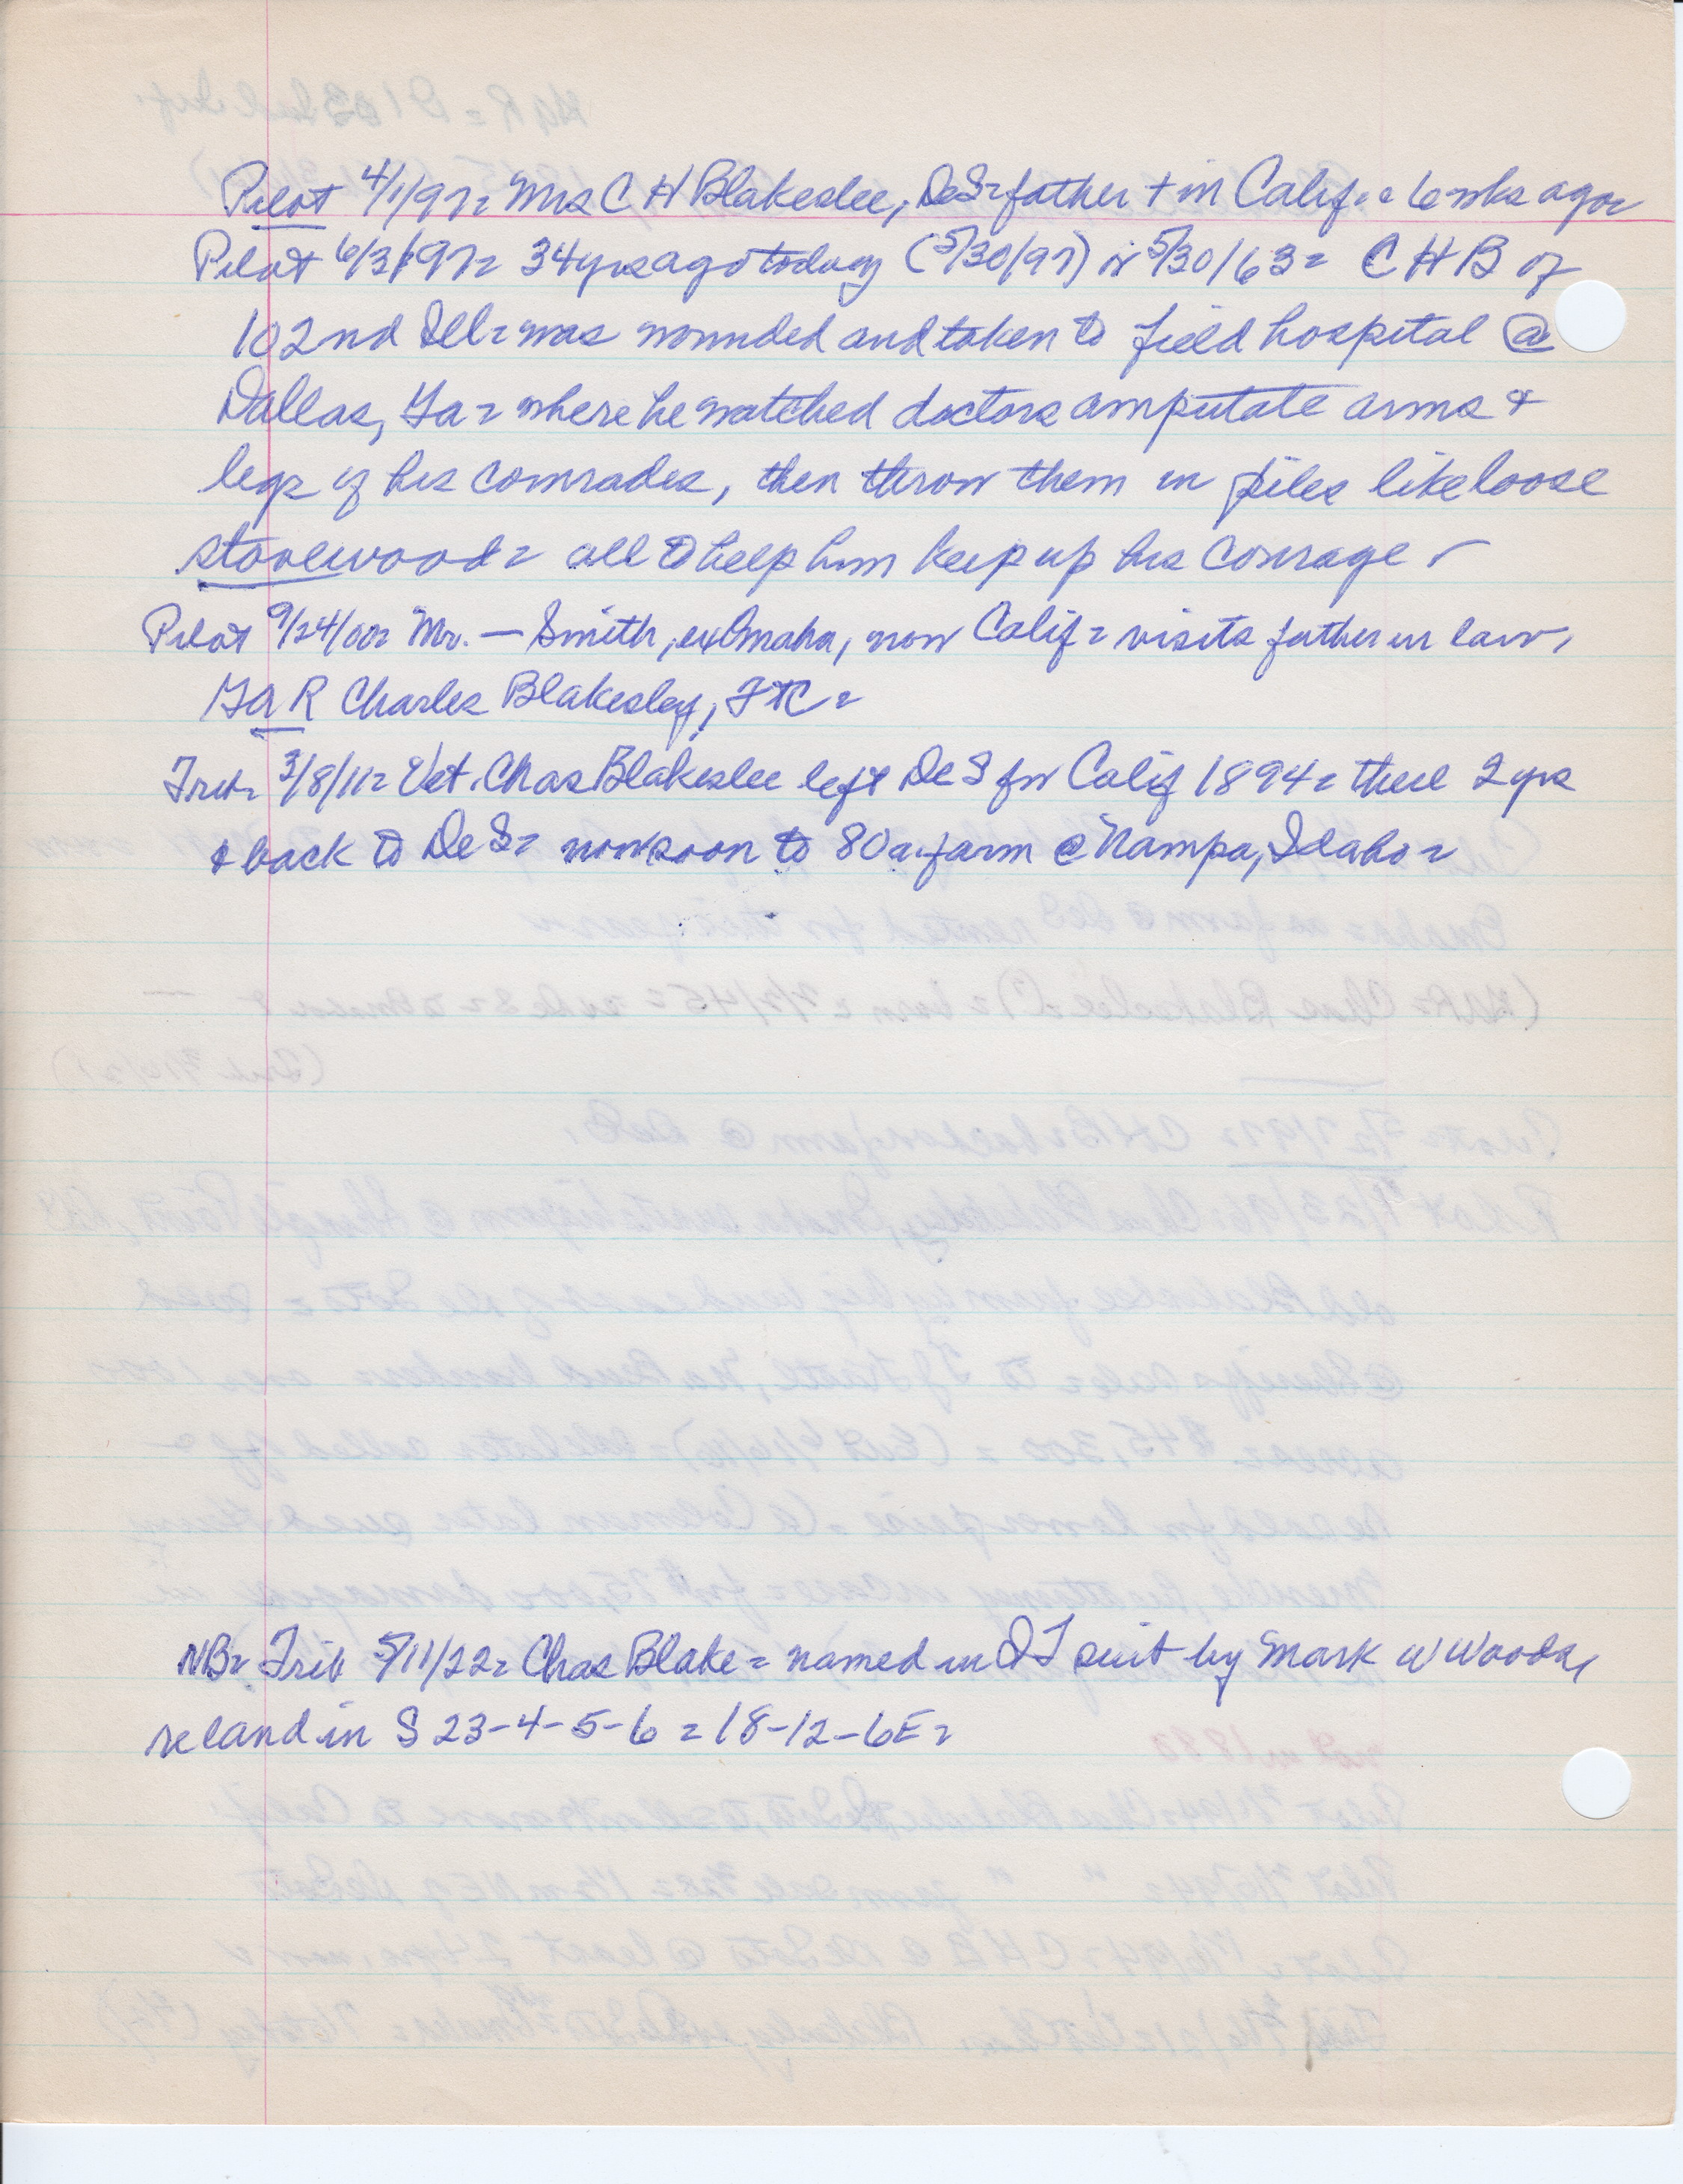 Pilot 4/1/97= Mrs C H Blakeslee, DeS= father + in Calif. = 6 wks ago=
Pilot 6/3/97= 34 yrs ago today (5/30/97) or 5/30/63= C H B of
102nd Ill= was wounded and taken to field hospital @
Dallas, Ga= where he watched doctors amputate arms &
legs of his comrades, then throw them in piles like loose
stovewood= all to help him keep up his courage
Pilot 9/24/00= Mr. — Smith, ex Omaha, now Calif= visits father in law,
GAR Charles Blakesley, FTC=
Trib= 3/8/11= Vet. Chas Blakeslee left DeS for Calif 1894= there 2 yrs
& back to DeS= now soon to 80 a. farm @ Nampa, Idaho=
NB= Trib 5/11/22= Chas Blake= named in QT suit by Mark W Woods,
re land in S 23-4-5-6 = 18-12-6E=